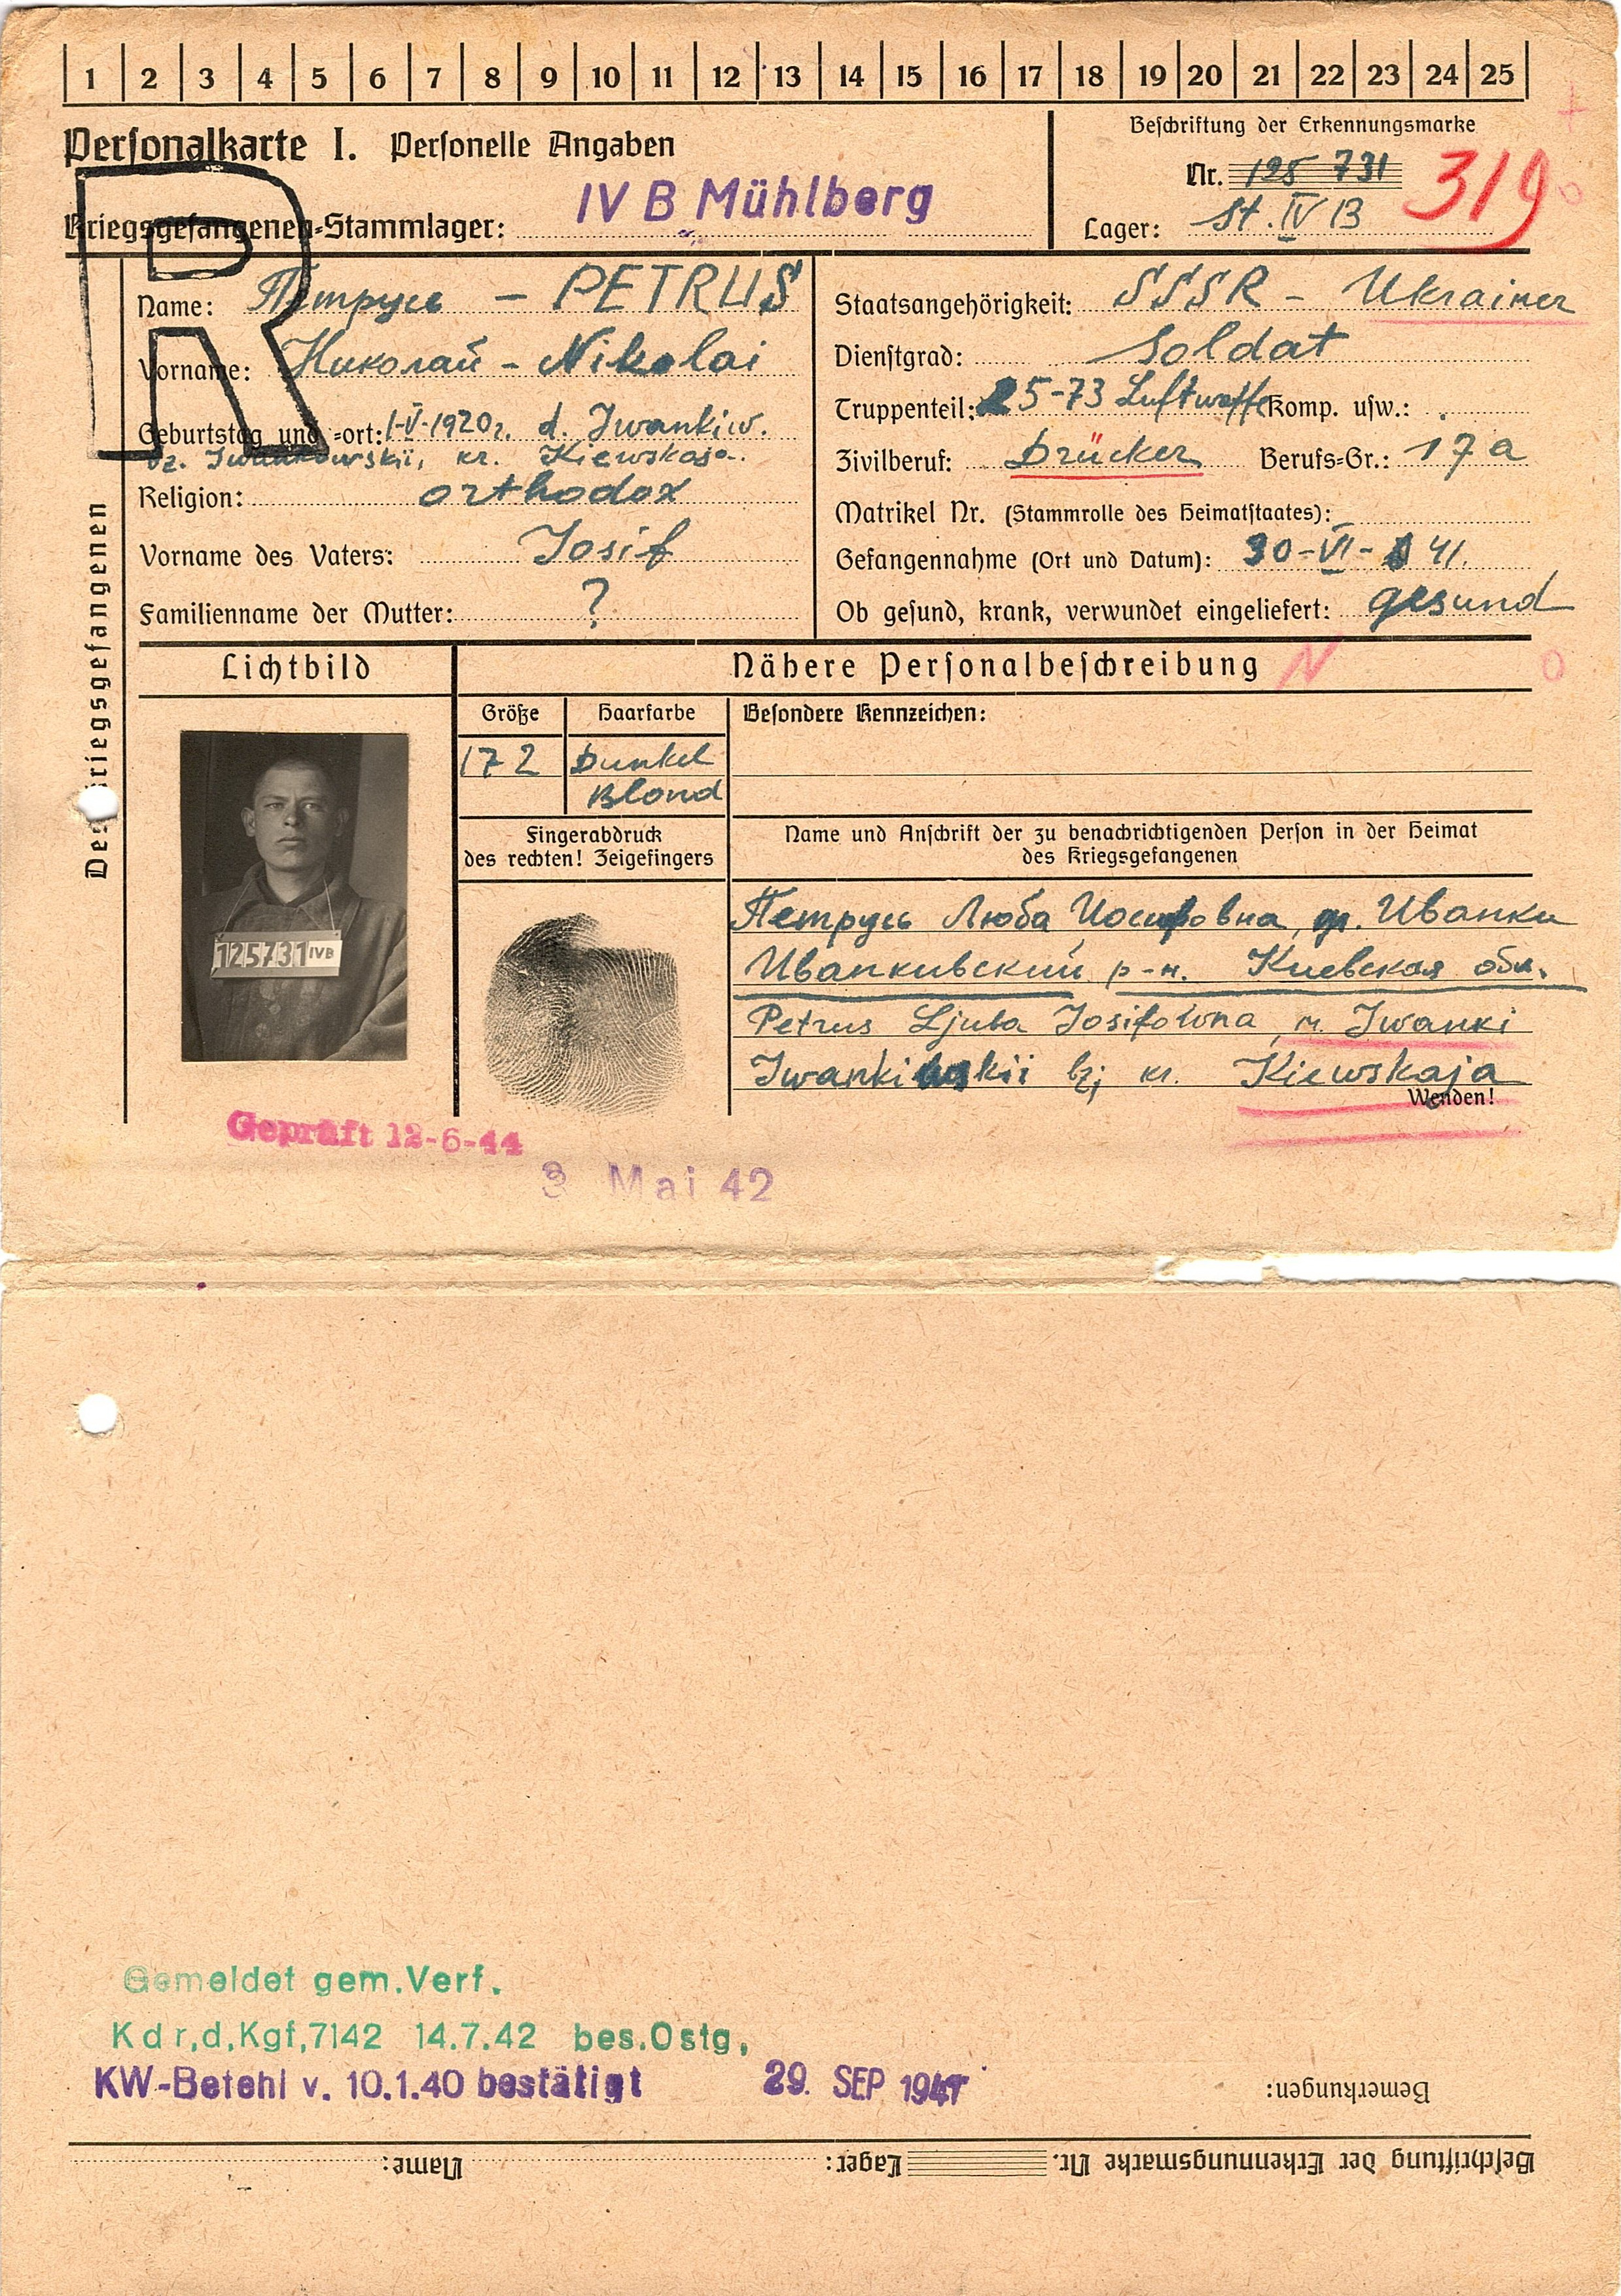 1 2 3 4 5 6 7 8 9 10 11 12 13 14 15 16 17 18 19 20 21 22 23 24 25
Personalkarte I. Personelle Angaben
Kriegsgefangenen-Stammlager: IV B Mühlberg
Beschriftung der Erkennungsmarke
Nr. 125 731
319
Lager: St. IV B
R
Des Kriegsgefangenen
Name: Петрусь – PETRUS
Vorname: Николай – Nikolai
Geburtstag und -ort: 1-V-1920г. d. Iwankiw.
bz. Iwankowskii, kr. Kiewskaja.
Religion: orthodox
Vorname des Vaters: Iosif
Familienname der Mutter: ?
Staatsangehörigkeit: SSSR – Ukrainer
Dienstgrad: Soldat
Truppenteil: 25-73 Luftwaffe Komp. usw.:
Zivilberuf: Drücker Berufs-Gr.: 17a
Matrikel Nr. (Stammrolle des Heimatstaates):
Gefangennahme (Ort und Datum): 30-VI-41.
Ob gesund, krank, verwundet eingeliefert: gesund
Lichtbild
125731 IVB
Nähere Personalbeschreibung N
Größe
172
Haarfarbe
Dunkel
Blond
Besondere Kennzeichen:
Fingerabdruck
des rechten! Zeigefingers
Name und Anschrift der zu benachrichtigenden Person in der Heimat
des Kriegsgefangenen
Петрусь Люба Иосифовна, др. Иванки
Иванкивский р-н. Киевская обл.
Petrus Ljuba Iosifowna, Iwanki
Iwankiwskii bz; kr. Kiewskaja
Wenden!
Geprüft 12-6-44
3 Mai 42
Gemeldet gem.Verf.
Kdr,d,Kgf,7142 14.7.42 bes.Ostg,
KW-Befehl v. 10.1.40 bestätigt 29. SEP 1941
Bemerkungen:
Beschriftung der Erkennungsmarke Nr. Lager: Name: